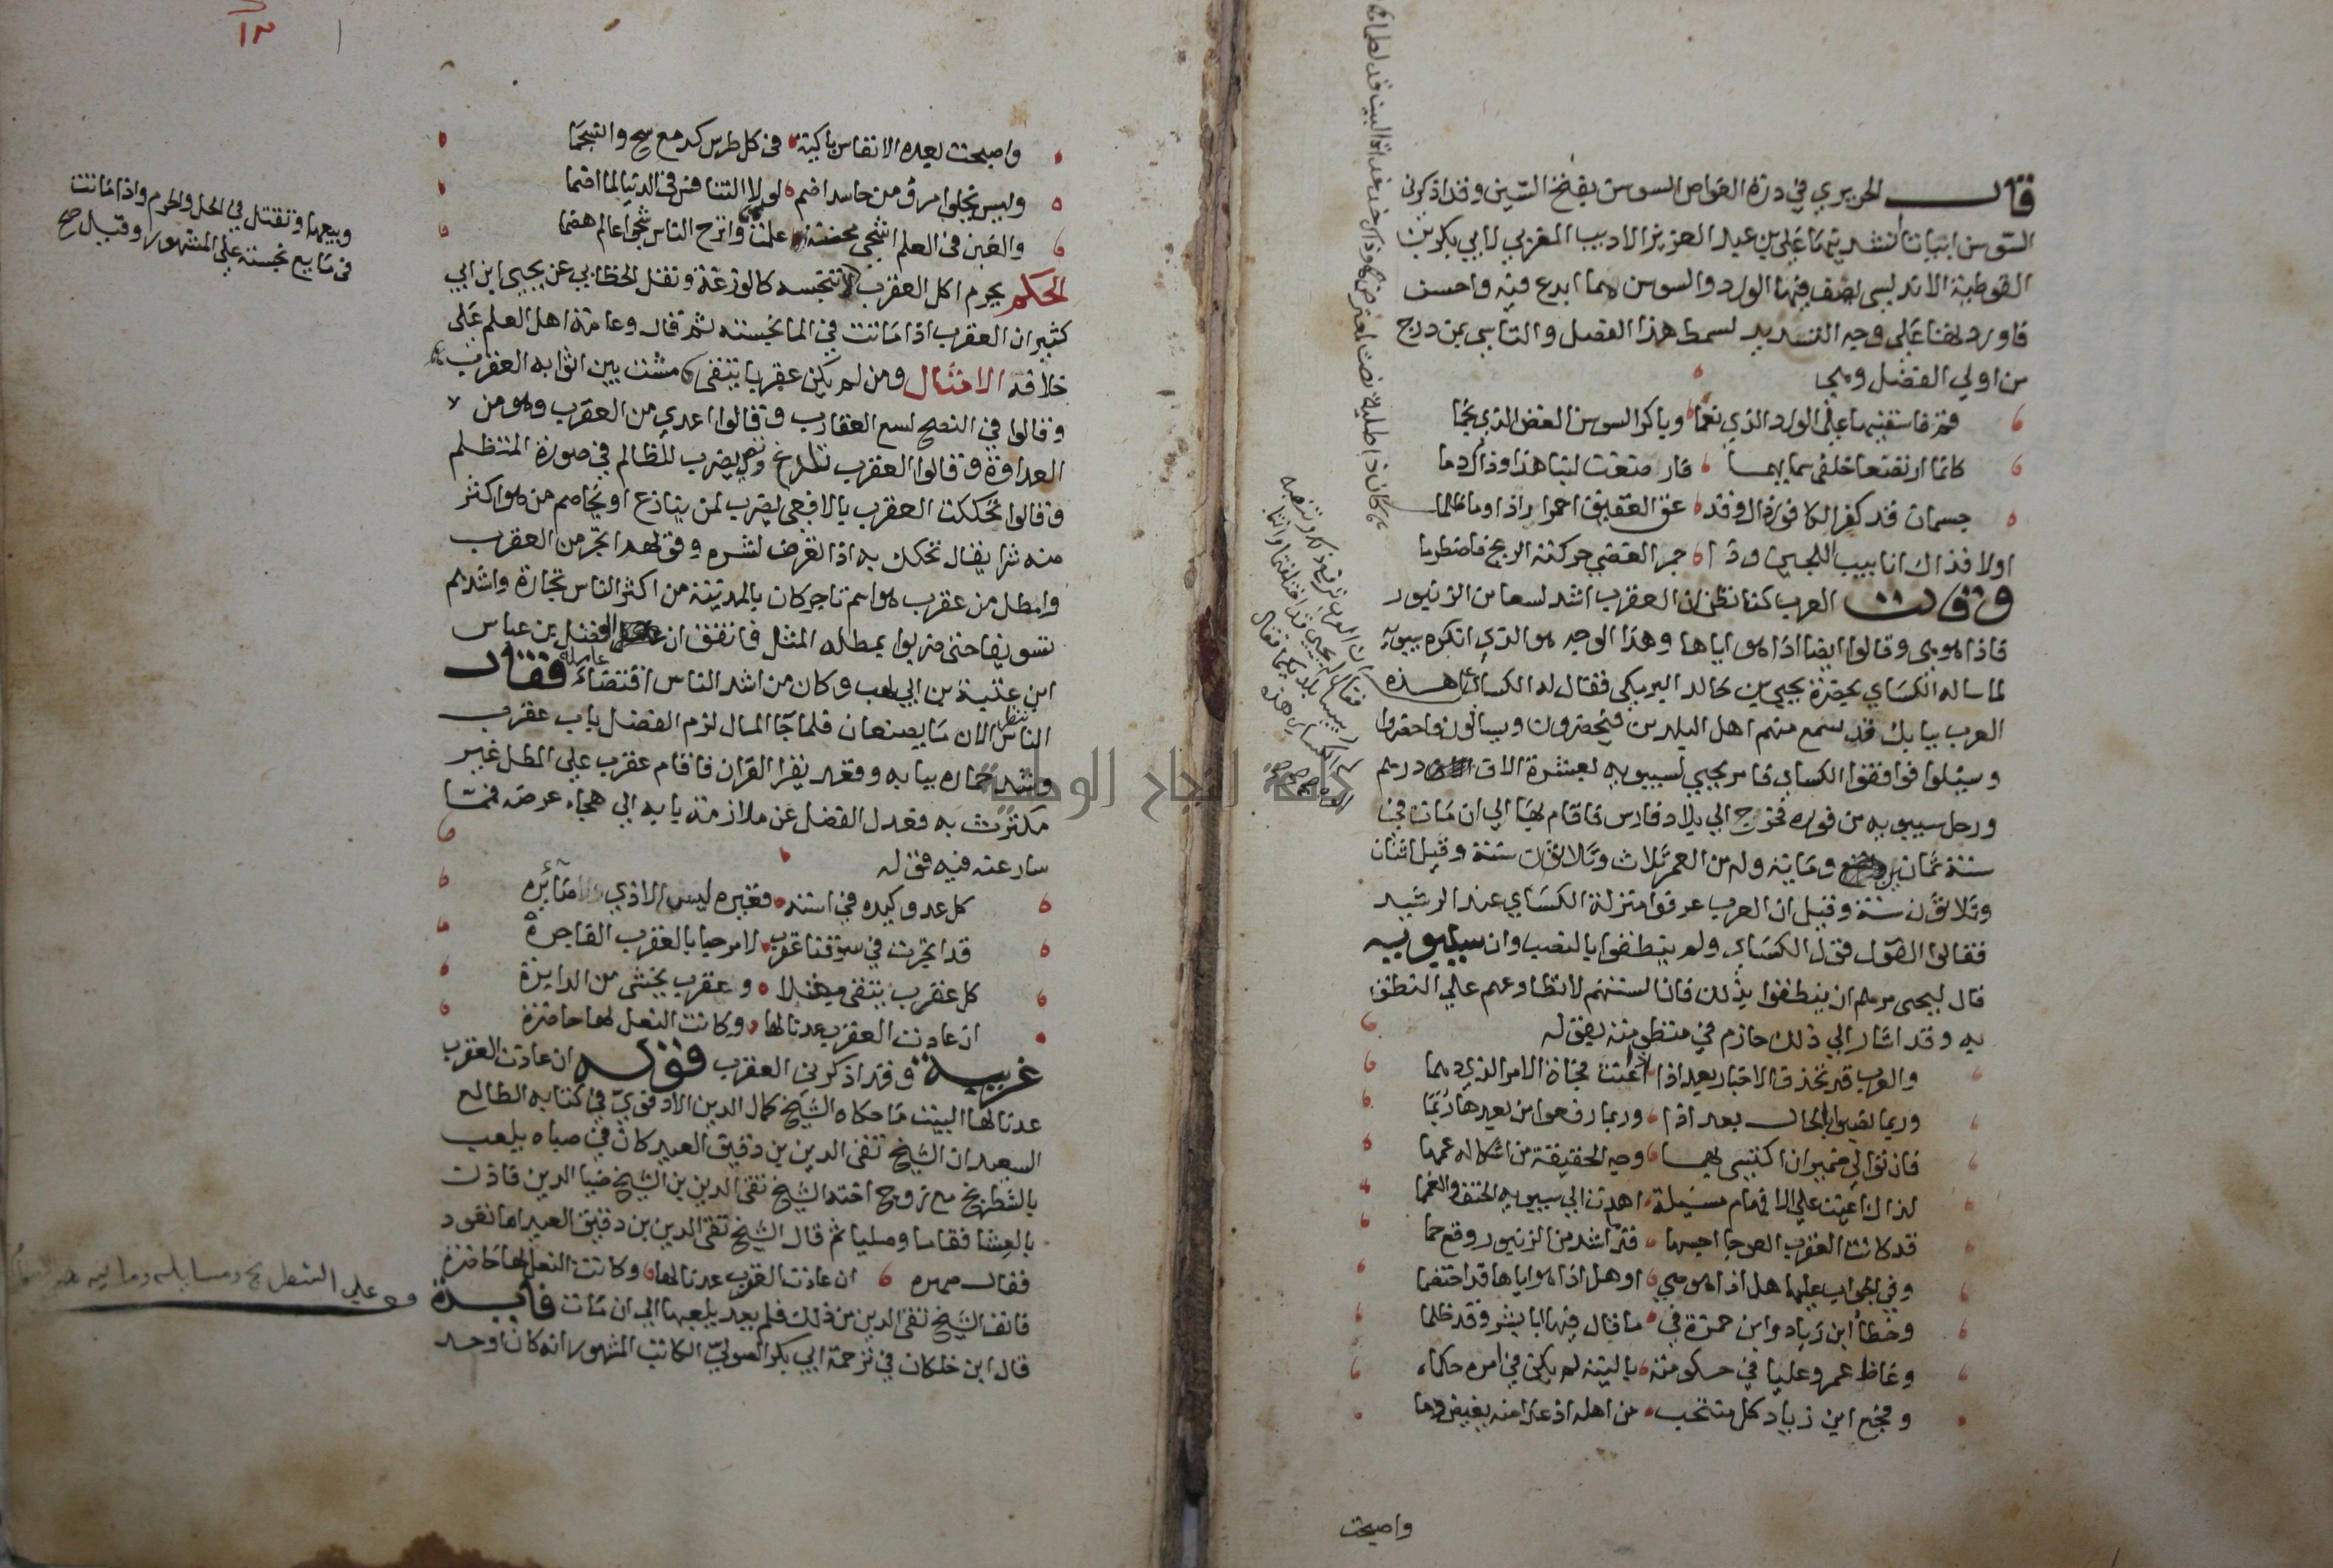 قال الحريري في درة الغواص السوسن بفتح السين وقد اذكرني
السوسن ابياتا أنشدنيها علي بن عبد العزيز الاديب المغربي لابي بكر بن
القوطية الاندلسي يصف فيها الورد والسوسن مما ابدع فيه واحسن
فاوردتها على وجه التسديد لسمط هذا الفصل والتاسي بمن درج
من اولي الفضل وهي
قم فاسقنيها على الورد الذي نعما وباكر السوسن الغض الذي نجما
كانما ارتضعا خلفي سمايهما فارضعت لبنا هذا وذاك دما
جسمان قد كفر الكافور ذاك وقد عق العقيق احمرارا ذا وما ظلما
اولا فذاك انابيب اللجين وذا جمر الغضي حركته الريح فاضطرما
وقالت العرب كنا نظن ان العقرب اشد لسعا من الزنبور
فاذا هو هي وقالوا ايضا اذا هو اياها وهذا الوجه هو الذي انكره سيبويه
لما ساله الكساي بحضرة يحيى بن خالد البرمكي فقال له الكساي هذه
العرب ببابك قد سمع منهم اهل البلدين فيحضرون ويسالون فاحضروا
وسيلوا فوافقوا الكساي فامر يحيي لسيبويه بعشرة الاف درهم
ورحل سيبويه من فوره فخرج الي بلاد فارس فاقام بها الي ان مات في
سنة ثمانين ومايه وله من العمر ثلاث وثلاثون سنة وقيل اثنان
وثلاثون سنة وقيل ان العرب عرفوا منزلة الكساي عند الرشيد
فقالوا القول قول الكساي ولم ينطقوا بالنصب وان سيبويه
قال ليحيى مرهم ان ينطقوا بذلك فان السنتهم لا تطاوعهم علي النطق
به وقد اشار الي ذلك حازم في منظومته بقوله
والعرب قد تحذف الاخبار بعد اذا اذا عنت فجاة الامر الذي دهما
وربما نصبوا بالحال بعد اذا وربما رفعوا من بعدها ربما
فان توالي ضميران اكتسى بهما وجه الحقيقة من اشكاله غمما
لذاك اعيت علي الافهام مسيلة اهدت الي سيبويه الحتف والغمما
قد كانت العقرب العوجا احسبها قدما اشد من الزنبور وقع حما
وفي الجواب عليها هل اذا هو هي او هل اذا هو اياها قد اختصما
وخطأ ابن زياد وابن حمزة في ما قال فيها ابا بشر وقد ظلما
وغاظ عمرو عليا في حكومته يا ليته لم يكن في امره حكماء
وفجع ابن زياد كل منتحب من اهله اذ غدا منه يفيض دما
واصبحت
واصبحت بعده الانفاس باكية في كل طرس كدمع سح وانسجما
وليس يخلوا مرؤ من حاسد اضم لولا التنافس في الدنيا لما اضما
والغبن في العلم اشجى محنة علمت وابرح الناس شجوا عالم هضما
الحكم يحرم اكل العقرب كالوزغة ونقل الخطابي عن يحيى ابن ابي
كثير ان العقرب اذا ماتت في الما نجسته ثم قال وعامة اهل العلم على
خلافه الامثال ومن لم يكن عقربا يتقى مشت بين اثوابه العقرب
وقالوا في النصح لسع العقارب وقالوا اعدي من العقرب وهو من
العداوة وقالوا العقرب تلدغ وتصي يضرب للظالم في صورة المتظلم
وقالوا تحككت العقرب بالافعى يضرب لمن ينازع او يخاصم من هو اكثر
منه شرا يقال تحكك به اذا تعرض لشره وقولهم اتجر من العقرب
وامطل من عقرب هو اسم تاجر كان بالمدينة من اكثر الناس تجارة واشدهم
تسويفا حتى ضربوا بمطله المثل فاتفق ان عامله الفضل بن عباس
ابن عتبة بن ابي لهب وكان من اشد الناس اقتضاء فقال
الناس الان ننظر ما يصنعان فلما جا المال لزم الفضل باب عقرب
وشد حماره ببابه وقعد يقرا القران فاقام عقرب علي المطل غير
مكترث به فعدل الفضل عن ملازمة بابه الي هجاء عرضه فمما
سار عنه فيه قوله
كل عدو كيده في استه فغيره ليس الاذي ضائره
قد اتجرت في سوقنا عقرب لا مرحبا بالعقرب التاجرة
كل عقرب يتقى مقبلا وعقرب يخشى من الدابرة
ان عادت العقرب عدنا لها وكانت النعل لها حاضرة
غريبة وقد اذكرني العقرب قوله ان عادت العقرب
عدنا لها البيت ما حكاه الشيخ كمال الدين الادفوي في كتابه الطالع
السعيد ان الشيخ تقى الدين بن دقيق العيد كان في صباه يلعب
بالشطرنج مع زوج اخته الشيخ تقي الدين بن الشيخ ضيا الدين فاذن
بالعشا فقاما وصليا ثم قال الشيخ تقي الدين بن دقيق العيد اما نعود
فقال صهره ان عادت العقرب عدنا لها وكانت النعل لها حاضرة
فانف الشيخ تقى الدين من ذلك فلم يعد يلعبها الي ان مات فائدة
قال ابن خلكان في ترجمة ابي بكر الصولي الكاتب المشهور انه كان اوحد
وبيعها وتقتل في الحل والحرم واذا ماتت
في مايع نجسته على المشهور وقيل صح
١٣